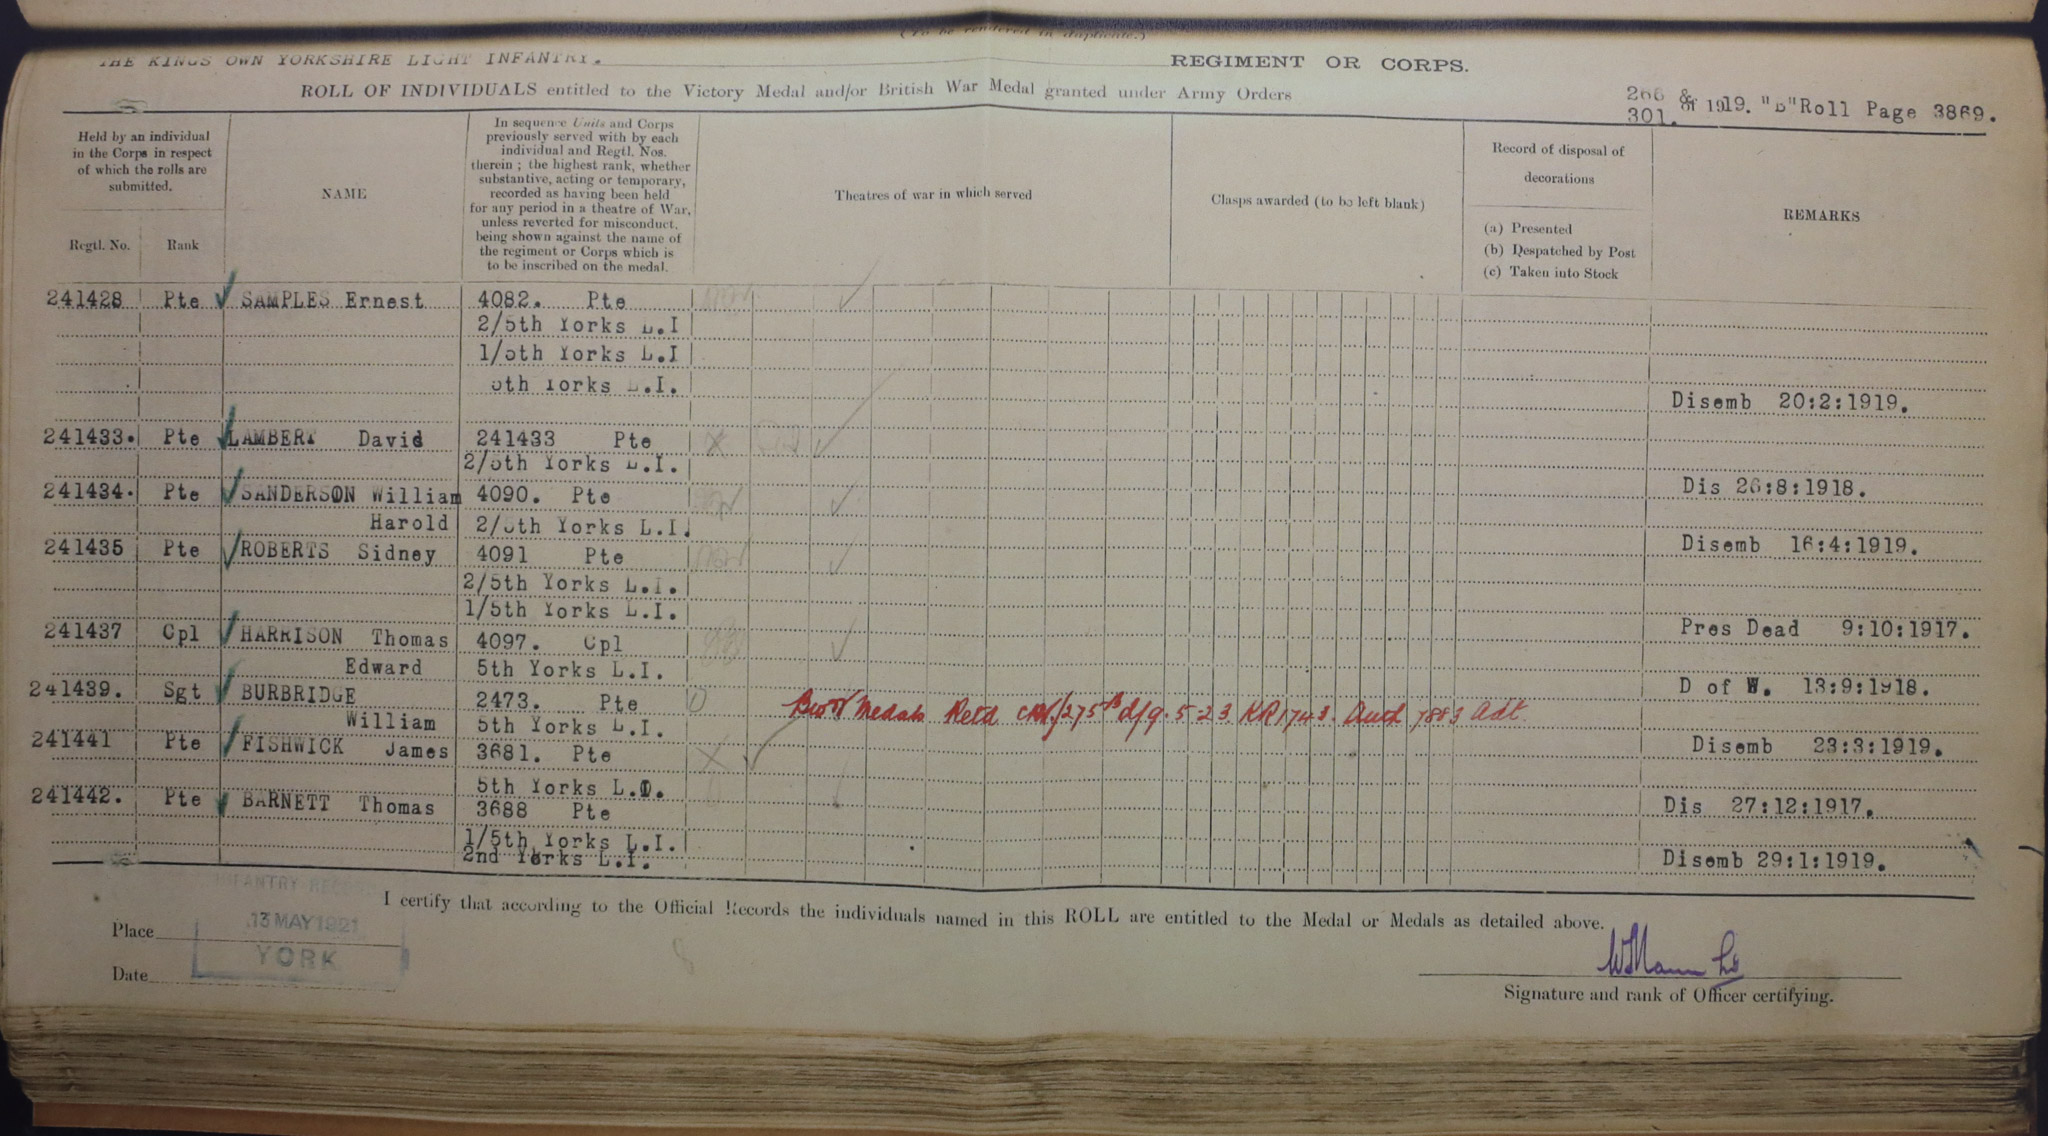 (To be rendered in duplicate.)
THE KINGS OWN YORKSHIRE LIGHT INFANTRY. REGIMENT OR CORPS.
ROLL OF INDIVIDUALS entitled to the Victory Medal and/or British War Medal granted under Army Orders 266 & 301. of 1919. "B" Roll Page 3869.
Held by an individual in the Corps in respect of which the rolls are submitted.
Regtl. No.
Rank
NAME
In sequence Units and Corps
previously served with by each
individual and Regtl. Nos.
therein ; the highest rank, whether
substantive, acting or temporary,
recorded as having been held
for any period in a theatre of War,
unless reverted for misconduct,
being shown against the name of
the regiment or Corps which is
to be inscribed on the medal.
Theatres of war in which served
Clasps awarded (to be left blank)
Record of disposal of
decorations
(a) Presented
(b) Despatched by Post
(c) Taken into Stock
REMARKS
241428 Pte SAMPLES Ernest 4082. Pte
2/5th Yorks L.I
1/5th Yorks L.I
5th Yorks L.I. Disemb 20:2:1919.
241433. Pte LAMBERT David 241433 Pte
2/5th Yorks L.I. Dis 26:8:1918.
241434. Pte SANDERSON William 4090. Pte
Harold 2/5th Yorks L.I. Disemb 16:4:1919.
241435 Pte ROBERTS Sidney 4091 Pte
2/5th Yorks L.I.
1/5th Yorks L.I. Pres Dead 9:10:1917.
241437 Cpl HARRISON Thomas 4097. Cpl
Edward 5th Yorks L.I. D of W. 13:9:1918.
241439. Sgt BURBRIDGE 2473. Pte
Medals Retd 275 d/9.5.23 KR1743. Auth 7883 Adt
William 5th Yorks L.I. Disemb 23:3:1919.
241441 Pte FISHWICK James 3681. Pte
5th Yorks L.I. Dis 27:12:1917.
241442. Pte BARNETT Thomas 3688 Pte
1/5th Yorks L.I.
2nd Yorks L.I. Disemb 29:1:1919.
I certify that according to the Official Records the individuals named in this ROLL are entitled to the Medal or Medals as detailed above.
INFANTRY
Place
13 MAY 1921
YORK
Date
Signature and rank of Officer certifying.